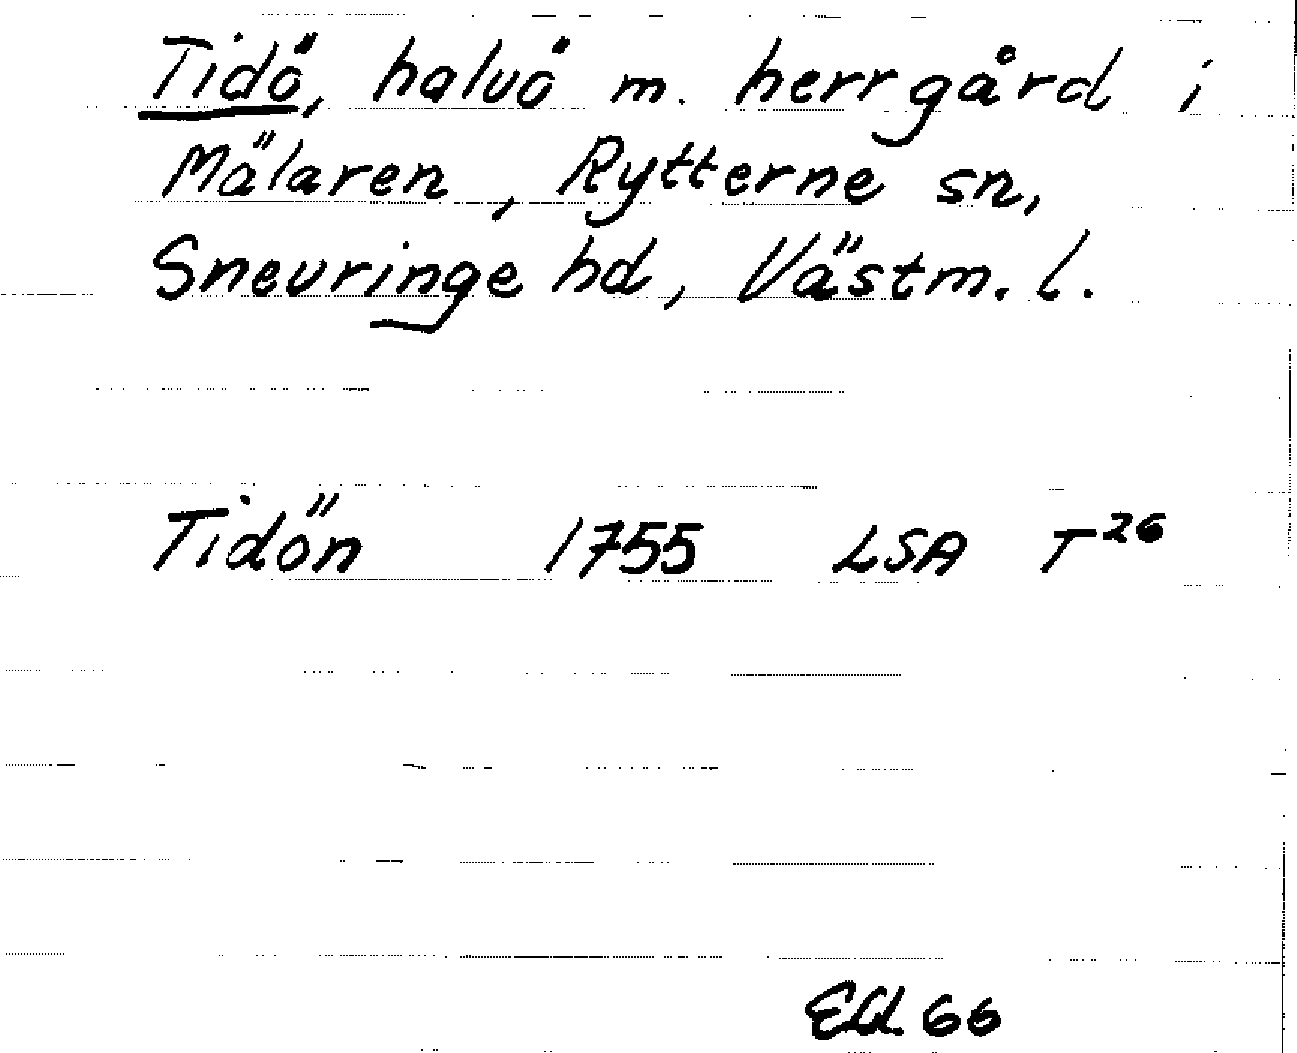 Tidö, halvö m. herrgård i
Mälaren, Rytterne sn,
Snevringe hd, Västm. l.
Tidön 1755 LSA T26
66